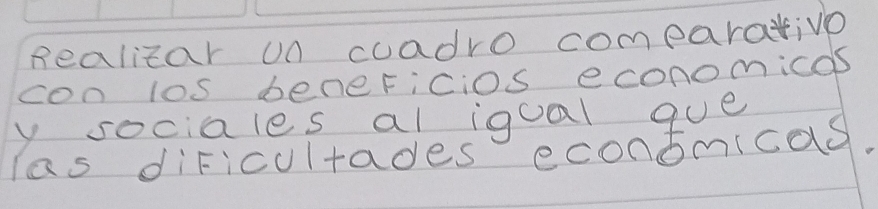 Realizar un cuadro comparativo
con los beneficios economicos
y sociales al igual que
las dificultades economicas.